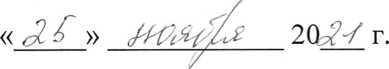 «25» ноября 2021 г.